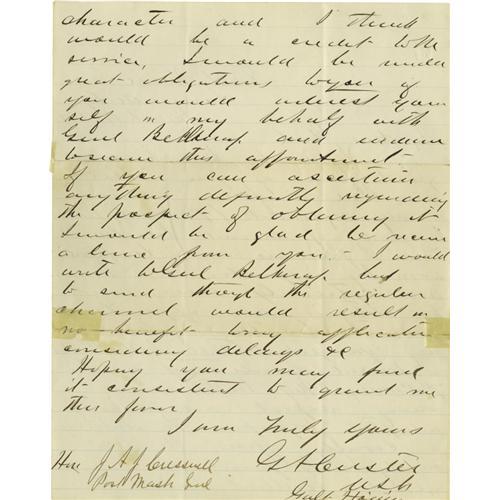 character and I think
would be a credit to the
service, I would be under
great obligations to you if
you would interest your
self in my behalf with
Genl Belknap and endeavor
to secure this appointment.
If you can ascertain
anything definitely regarding
the prospect of obtaining it
I would be glad to receive
a line from you. I would
write to Genl Belknap but
to send through the regular
channel would result in
no benefit to my application
considering delays &c
Hoping you may find
it consistent to grant me
this favor
I am Truly Yours
G A Custer
USA
Hon J A J Creswell
Post Mast Genl